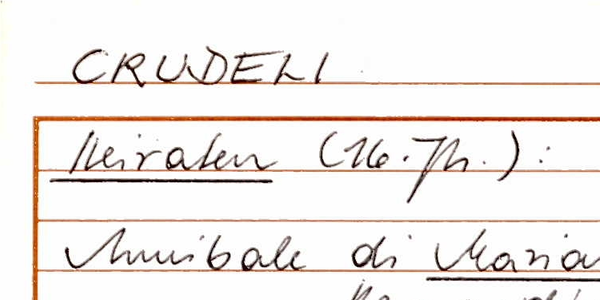 CRUDELI
Heiraten (16. Jh.):
Annibale di